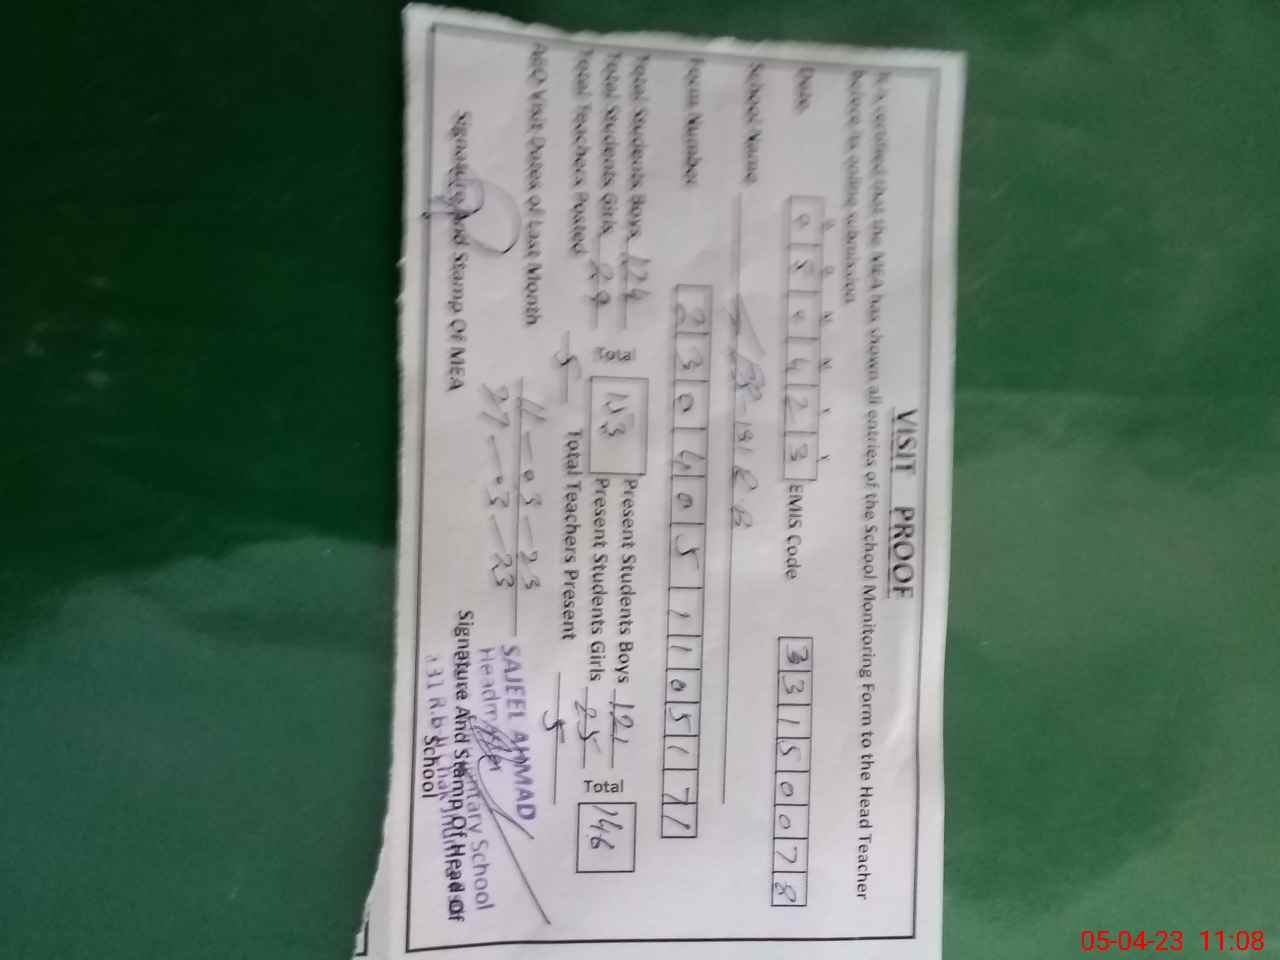 VISIT PROOF
It is certified that the MEA has shown all entries of the School Monitoring Form to the Head Teacher
before its online submission.
D D M M Y Y
Date 050423 EMIS Code 33150078
School Name 131 R.B
Form Number 2304051105171
Total Students Boys 124 Total 153 Present Students Boys 121 Total 146
Total Students Girls 29 Present Students Girls 25
Total Teachers Posted 5 Total Teachers Present 5
AEO Visit Dates of Last Month 11-03-23
27-03-23
SAJEEL AHMAD
Signature And Stamp Of MEA
Signature And Stamp Of Head Of
School
05-04-23 11:08